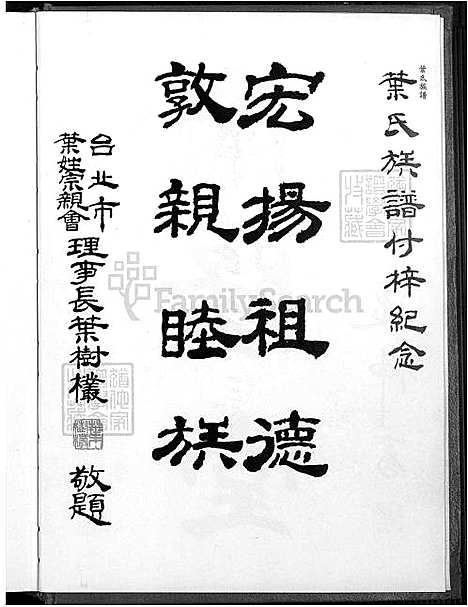 葉氏族譜
葉氏族譜付梓紀念
宏揚祖德
敦親睦族
台北市
葉姓崇親會
理事長葉樹欉
敬題
FamilySearch